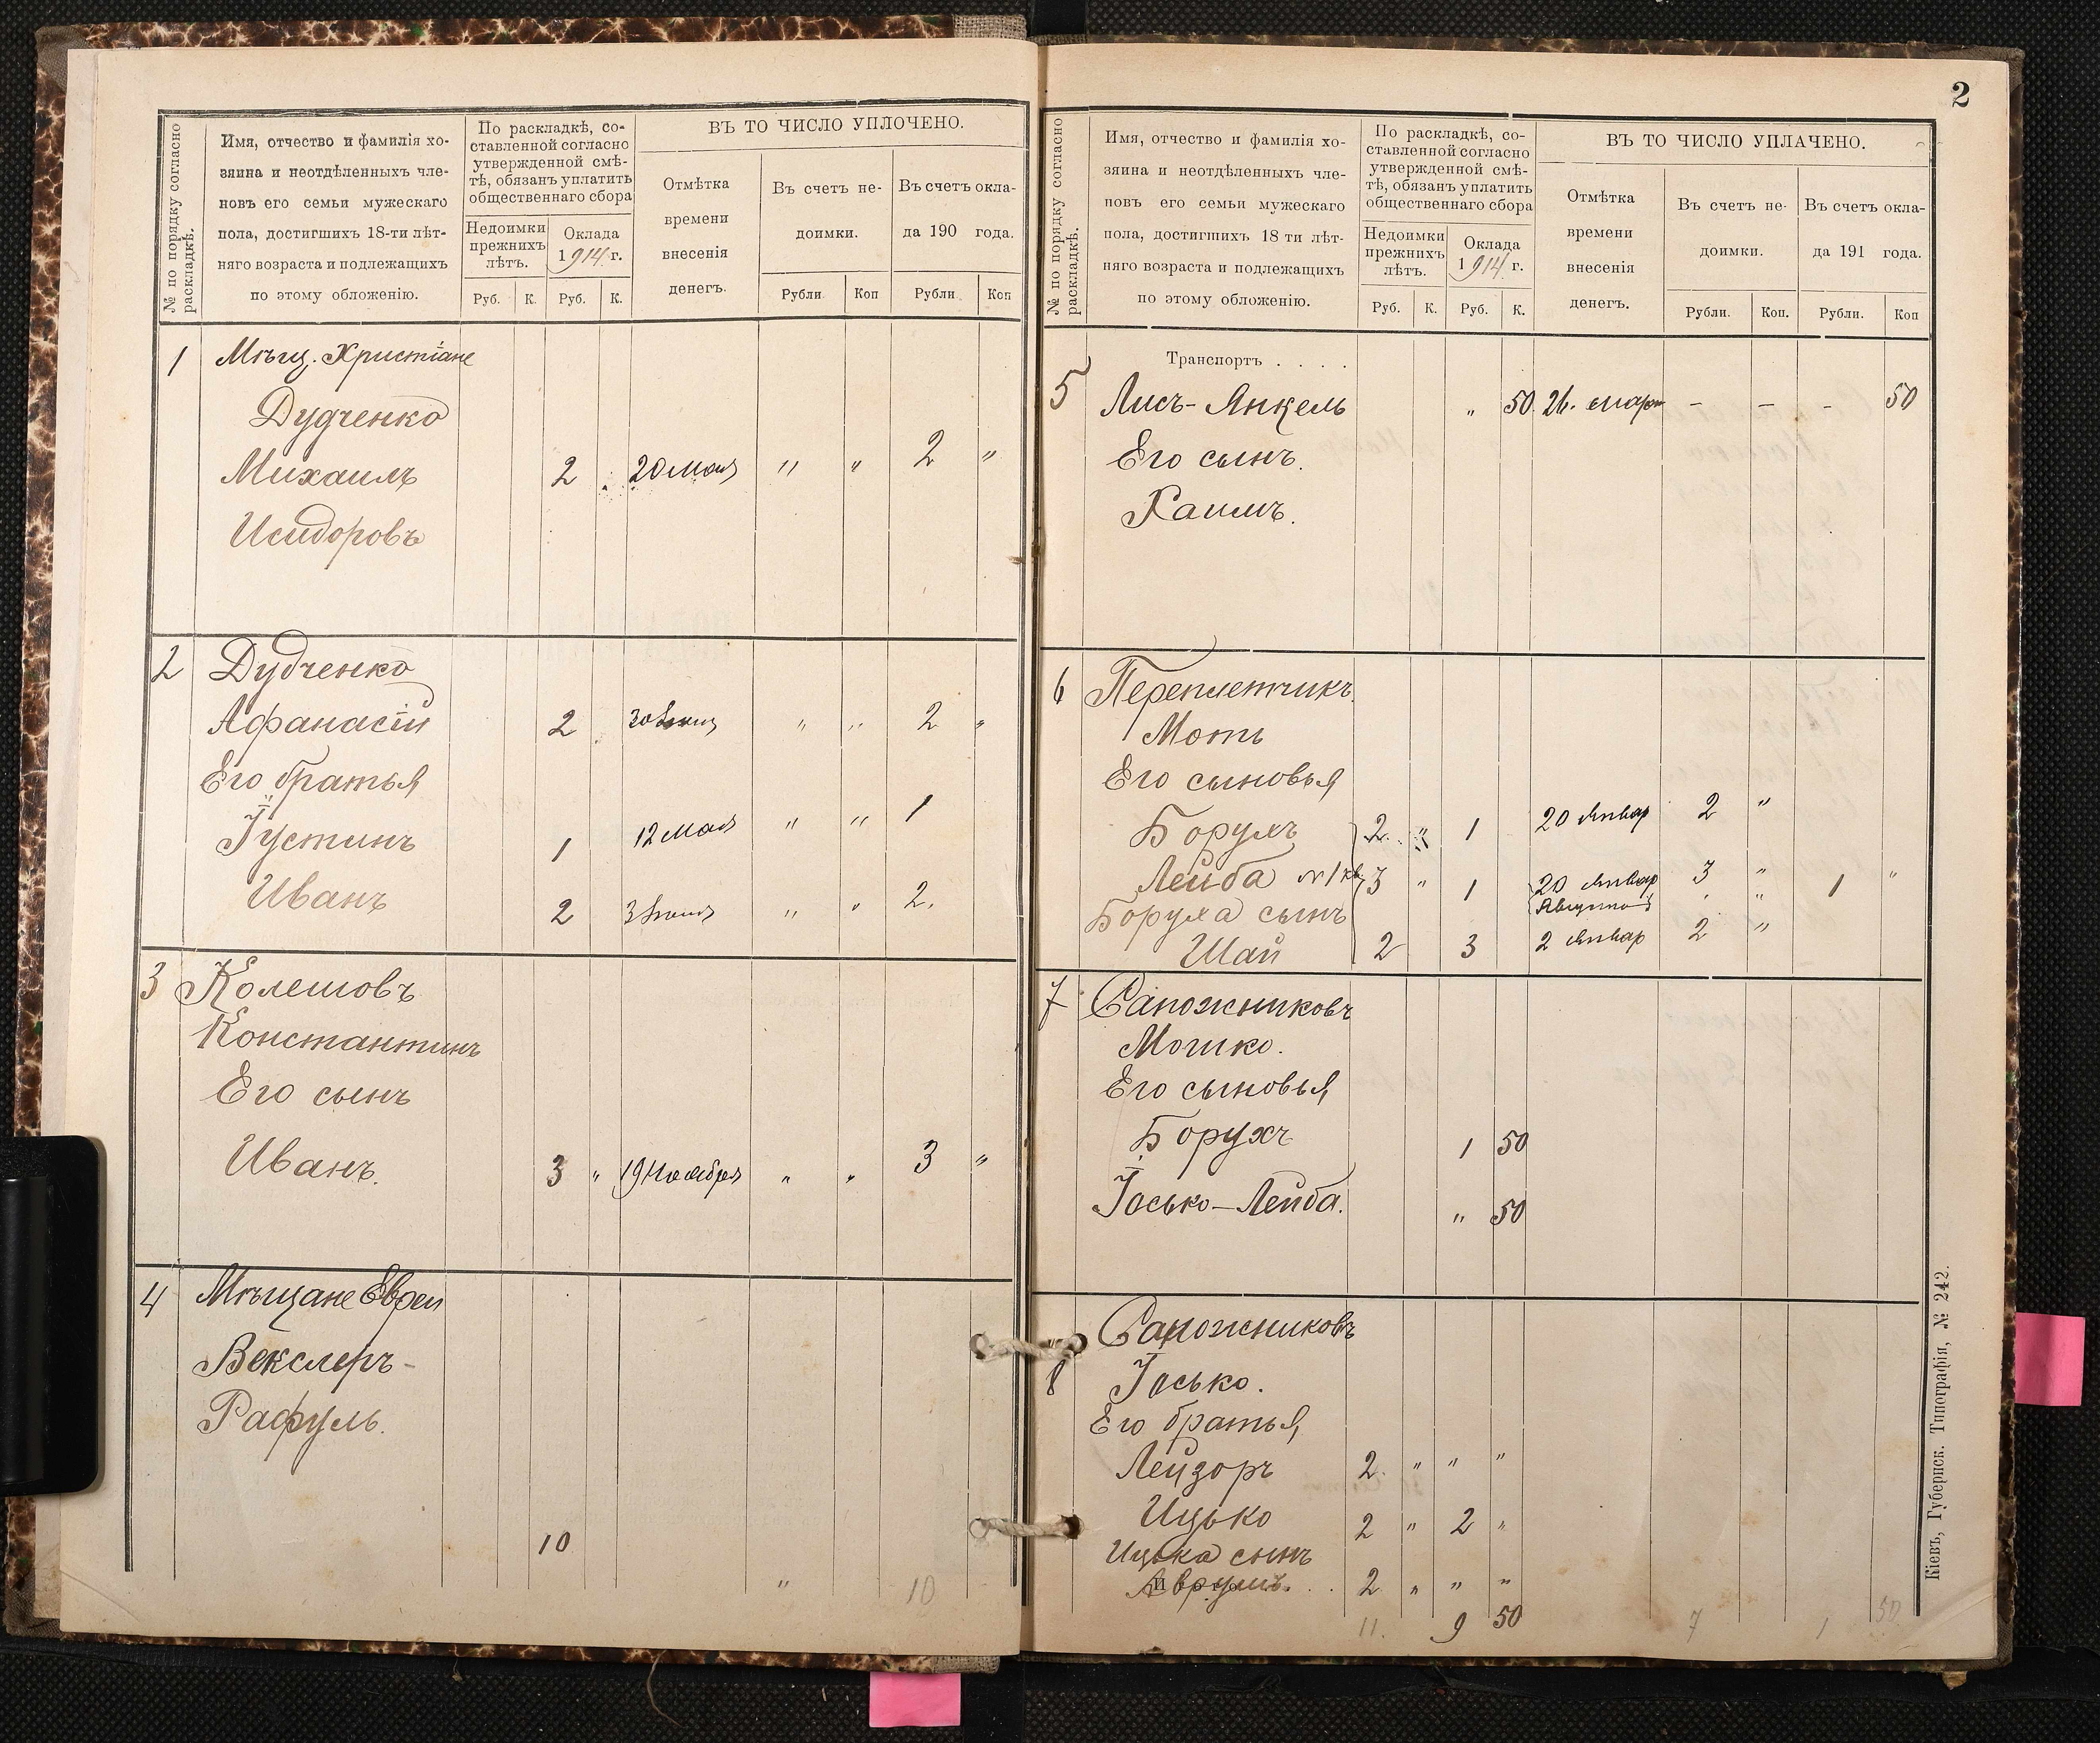 № по порядку согласно
раскладкѣ.
Имя, отчество и фамилія хо-
зяина и неотдѣленныхъ чле-
новъ его семьи мужескаго
пола, достигшихъ 18-ти лѣт-
няго возраста и подлежащихъ
по этому обложенію.
По раскладкѣ, со-
ставленной согласно
утвержденной смѣ-
тѣ, обязанъ уплатить
общественнаго сбора
Недоимки
прежнихъ
лѣтъ.
Оклада
1914 г.
Руб. К. Руб. К.
ВЪ ТО ЧИСЛО УПЛОЧЕНО.
Отмѣтка
времени
внесенія
денегъ.
Въ счетъ не-
доимки.
Въ счетъ окла-
да 190 года.
Рубли Коп Рубли. Коп
1 Мѣщ. Христіане
Дудченко
Михаилъ 2 20 мая " " 2 "
Исидоровъ
2 Дудченко
Афанасій 2 " " 2 "
Его братья
Іустинъ 1 12 мая " " 1
Иванъ 2 " " 2.
3 Колешовъ
Константинъ
Его сынъ
Иванъ. 3 " 19 Ноября " " 3 "
4 Мѣщане Евреи
Векслеръ-
Рафуль.
10
" 10
2
№ по порядку согласно
раскладкѣ.
Имя, отчество и фамилія хо-
зяина и неотдѣленныхъ чле-
новъ его семьи мужескаго
пола, достигшихъ 18 ти лѣт-
няго возраста и подлежащихъ
по этому обложенію.
По раскладкѣ, со-
ставленной согласно
утвержденной смѣ-
тѣ, обязанъ уплатить
общественнаго сбора
Недоимки
прежнихъ
лѣтъ.
Оклада
1914 г.
Руб. К. Руб. К.
ВЪ ТО ЧИСЛО УПЛАЧЕНО.
Отмѣтка
времени
внесенія
денегъ.
Въ счетъ не-
доимки.
Въ счетъ окла-
да 191 года.
Рубли. Коп. Рубли. Коп
Транспортъ . . . .
5 Лисъ-Янкель " 50 26. март - - - 50
Его сынъ.
Хаимъ.
6 Переплетчикъ
Моть
Его сыновья
Борухъ 2. " 1 20 Январ 2 "
Лейба 3 " 1 20 Январ 3 "
Августа " " 1 "
Боруха сынъ
Шай 2 3 2 Январ 2 "
7 Сапожниковъ
Мошко.
Его сыновья
Борухъ 1 50
Іосько-Лейба. " 50
Сапожниковъ
8 Іосько.
Его братья
Лейзоръ 2. " " "
Ицько 2 " 2 "
Ицька сынъ
Аврумъ. . . 2 " " "
11. 9 50 7 1 50
Кіевъ, Губернск. Типографія, № 242.